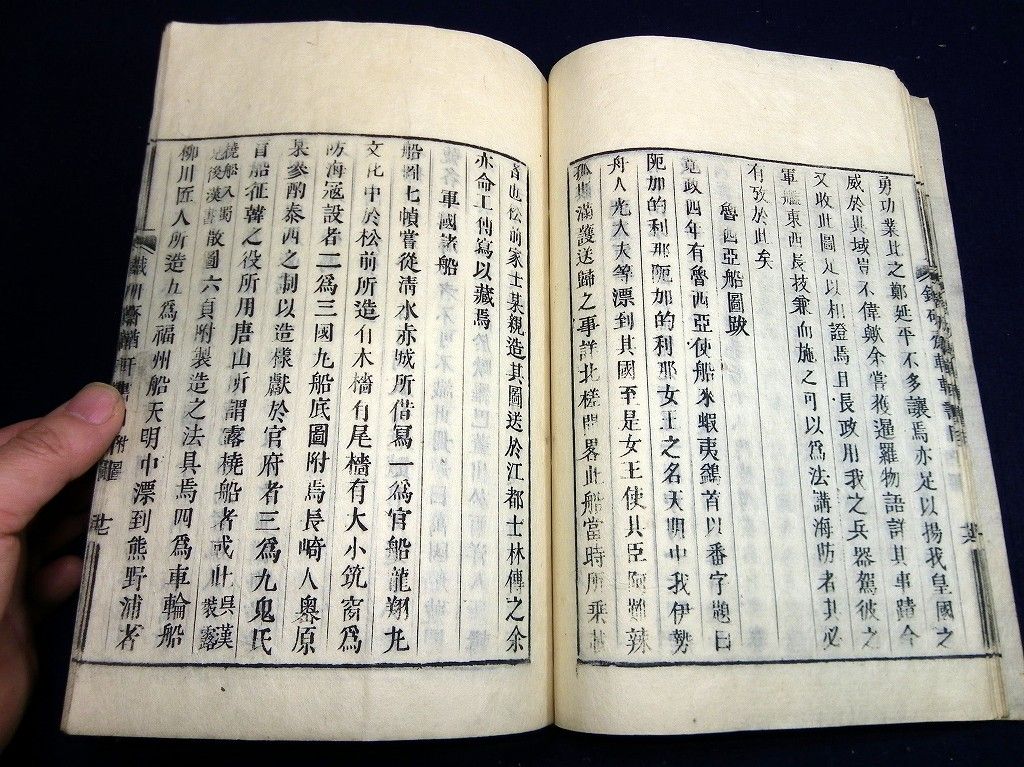 勇功業比之鄭延平不多讓焉亦足以揚我皇國之
威於異域豈不偉歟余嘗獲暹羅物語詳其事蹟今
又收此圖足以相證焉且長政用我之兵器駕彼之
軍艦東西長技兼而施之可以爲法講海防者其必
有攷於此矣
魯西亞船圖跋
寬政四年有魯西亞使船來蝦夷鷁首以番字題曰
阨加的利那阨加的利那女王之名天明中我伊勢
舟人光大夫等漂到其國至是女王使其臣阿
辣
孤
滿護送歸之事詳北槎聞畧此船當時所乘
者也松前家士某親造其圖送於江都士林傳之余
亦命工傳寫以藏焉
軍國諸船
船圖七幀嘗從清水赤城所借寫一爲官船龍翔九
文化中於松前所造有木檣有尾檣有大小筑窗爲
防海寇設者二爲三國九船底圖附焉長崎人
原
某參酌泰西之制以造樣獻於官府者三爲九鬼氏
首船征韓之役所用唐山所謂露橈船者或此吳漢
裝露
橈船入蜀
見後漢書
散圖六頁附製造之法具焉四爲車輪船
柳川匠人所造五爲福州船天明中漂到熊野浦者
附圖
七